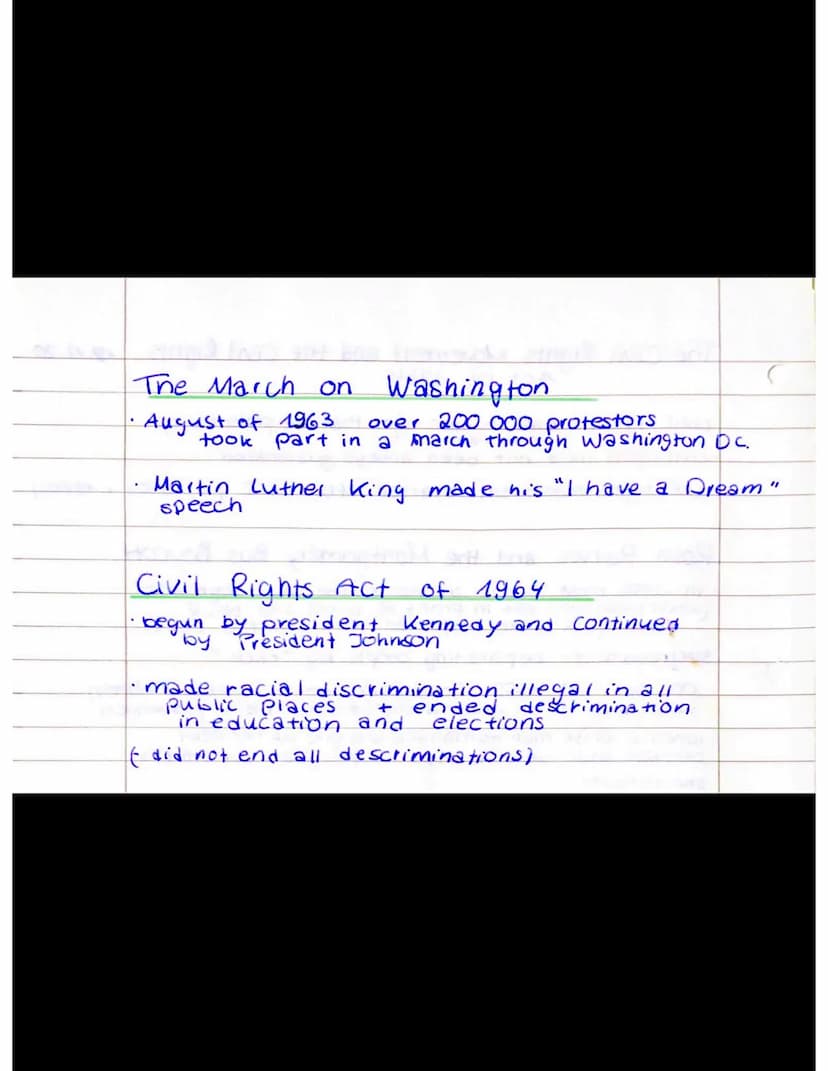 The March on Washington
· August of 1963 over 200 000 protestors
took part in a march through Washington DC.
· Martin Luther King made his "I have a Dream"
speech
Civil Rights Act of 1964
· begun by president Kennedy and continued
by President Johnson
· made racial discrimination illegal in all
public places + ended descrimination
in education and elections
( did not end all descriminations)